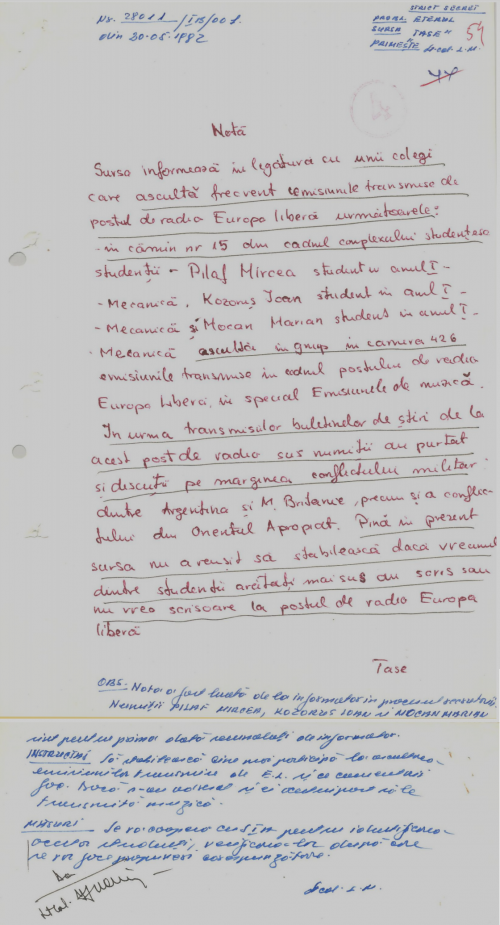 Nr. 28011/IB/001
din 20.05.1982
STRICT SECRET
PROBL. ETERUL
SURSA "TASE"
PRIMEȘTE Lt.col. L.M.
54
Notă
Sursa informează în legătură cu unii colegi
care ascultă frecvent emisiunile transmise de
postul de radio Europa liberă următoarele:
- în cămin nr 15 din cadrul complexului studențesc
studenții - Pilaf Mircea student în anul I -
- Mecanică, Kozoruș Ioan student în anul I -
- Mecanică și Mocan Marian student în anul I -
- Mecanică ascultă în grup în camera 426
emisiunile transmise în cadrul postului de radio
Europa Liberă, în special Emisiunele de muzică.
În urma transmisilor buletinelor de știri de la
acest post de radio sus numiții au purtat
și discuții pe marginea conflictului militar
dintre Argentina și M. Britanie, precum și a conflic-
tului din Orientul Apropiat. Pînă în prezent
sursa nu a reușit să stabilească dacă vreunul
dintre studenții arătați mai sus au scris sau
nu vreo scrisoare la postul de radio Europa
liberă
Tase
OBS: Nota a fost luată de la informator în procesul
Numiții PILAF MIRCEA, KOZORUS IOAN și MOCAN MARIAN
sînt pentru prima dată semnalați de informator.
INSTRUCȚIUNI Să stabilească cine mai participă la ascultarea
emisiunilor transmise de E.L. și ce comentarii
fac. Dacă s-au
transmită muzică.
MĂSURI Se va coopera cu pentru identificarea
acestor studenți, verificarea lor după care
se vor face propuneri corespunzătoare.
Da
Lt.col. L.M.